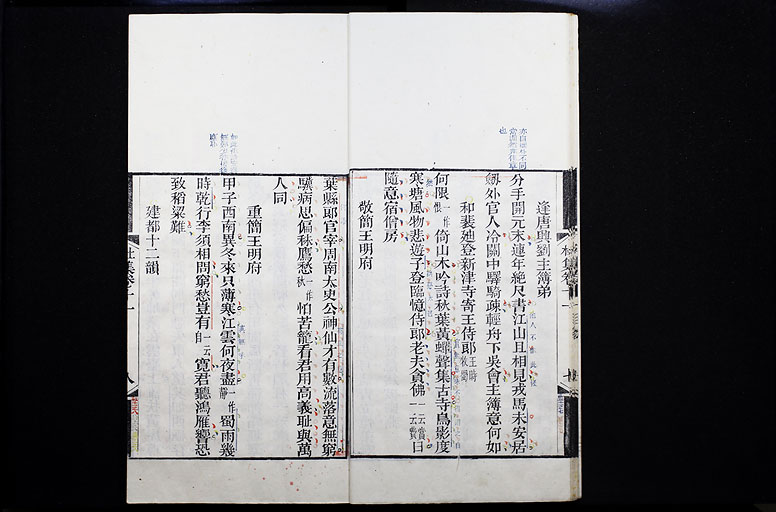 逢唐興劉主簿弟
分手開元末連年絶尺書江山且相見戎馬未安居
劔外官人冷關中驛騎疎輕舟下吳會主簿意何如
和裴廸登新津寺寄王侍郎王時牧蜀
何限一作恨倚山木吟詩秋葉黃蟬聲集古寺鳥影度
寒塘風物悲遊子登臨憶侍郎老夫貪佛一云賞日
隨意宿僧房
敬簡王明府
葉縣郎官宰周南太史公神仙才有數流落意無窮
驥病思偏秣鷹愁一作秋怕苦籠看君用高義恥與萬
人同
重簡王明府
甲子西南異冬來只薄寒江雲何夜盡一作靜蜀雨幾
時乾行李須相問窮愁豈有一云自寬君聽鴻雁響恐
致稻粱難
建都十二韻
杜集卷十一
八